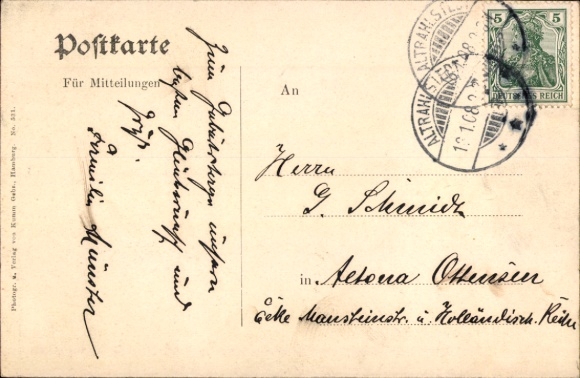 Postkarte
Für Mitteilungen
Zum Geburtstage unsern
besten Glückwunsch und
Gruß.
Familie Münster
Photogr. u. Verlag von Komm Gebr., Hamburg. No. 331.
ALTRAHLSTEDT
ALTRAHLSTEDT
5 5
DEUTSCHES REICH
An
Herrn
G. Schmidt
in Altona Ottensen
Ecke Mansteinstr. u. Holländisch. Reihe